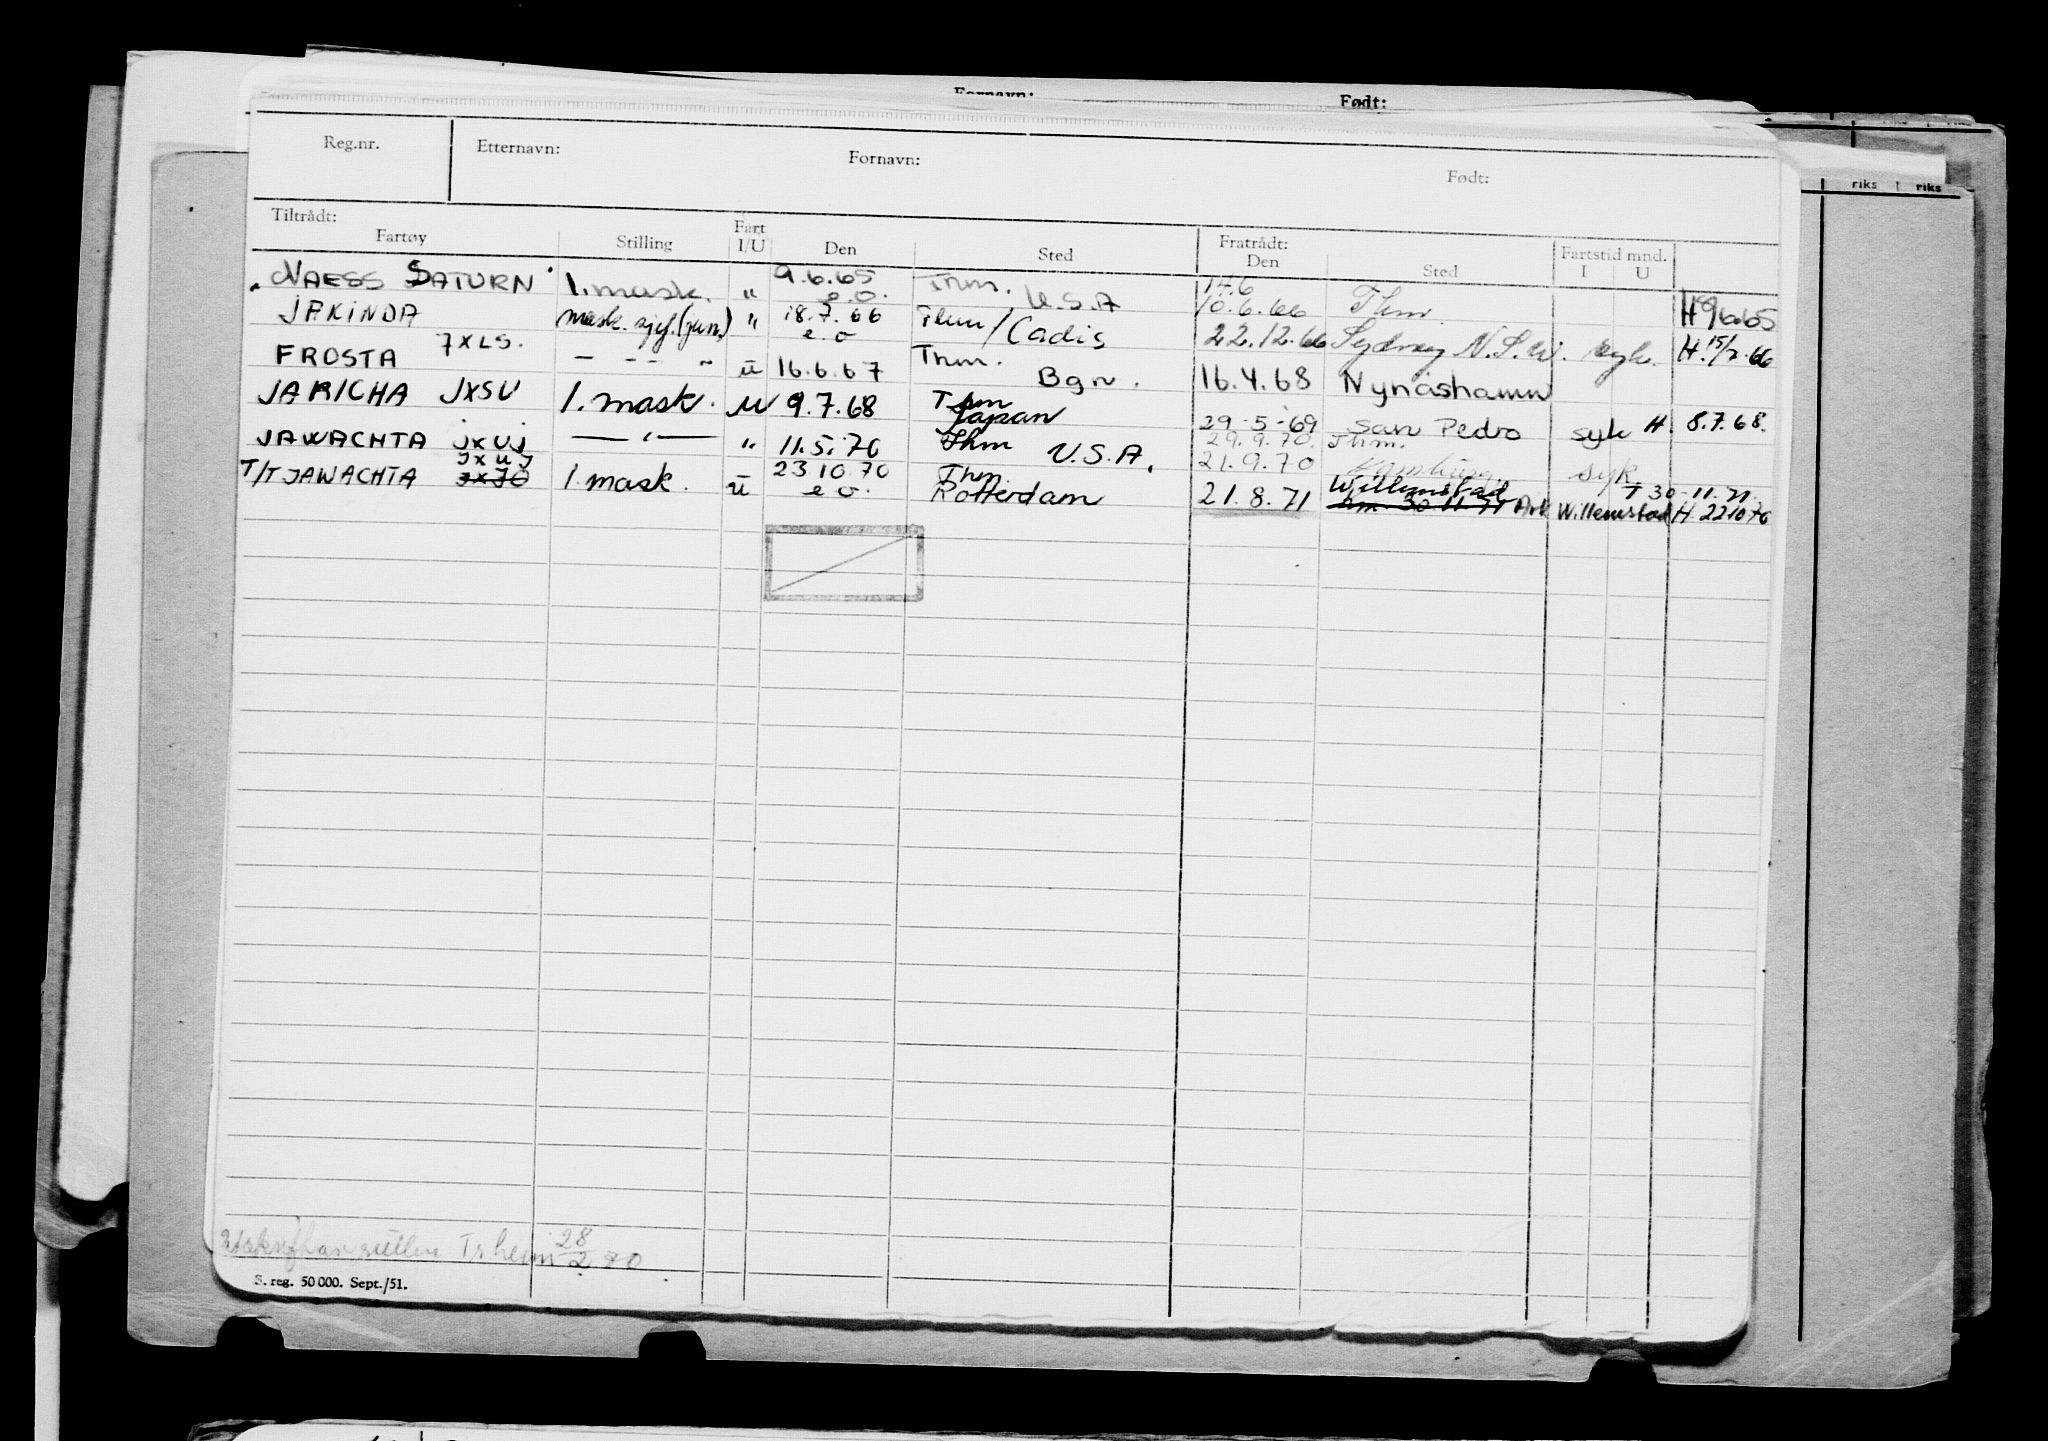 Fornavn: Født:
riks riks
Reg.nr. Etternavn: Fornavn: Født:
Tiltrådt: Fartøy Stilling Fart I/U Den Sted Fratrådt: Den Sted Fartstid mnd. I U
"NAESS SATURN" 1. mask. " 9.6.65 e.o. Thm. U.S.A 14.6 10.6.66 Thm. H 9.6.65
JAKINDA mask. sjef. (jun.) " 18.7.66 e.o / Cadis 22.12.66 Sydney N.S.W. syk. H. 15/7.66
FROSTA JXLS. — -- " u 16.6.67 Thm. Bgn. 16.4.68 Nynäshamn
JARICHA JXSU 1. mask. u 9.7.68 Thm Japan 29-5-69 San Pedro syk H 8.7.68.
JAWACHTA JXUJ — " — " 11.5.70 Thm U.S.A. 29.9.70. Thm. 21.9.70 Hamburg syk
T/T JAWACHTA JXUJ 1. mask. u 23 10.70 e o. Thm Rotterdam 21.8.71 Willemstad T 30-11.71 Willemstad H 221070
Trheim 28/2 70
S. reg. 50 000. Sept./51.